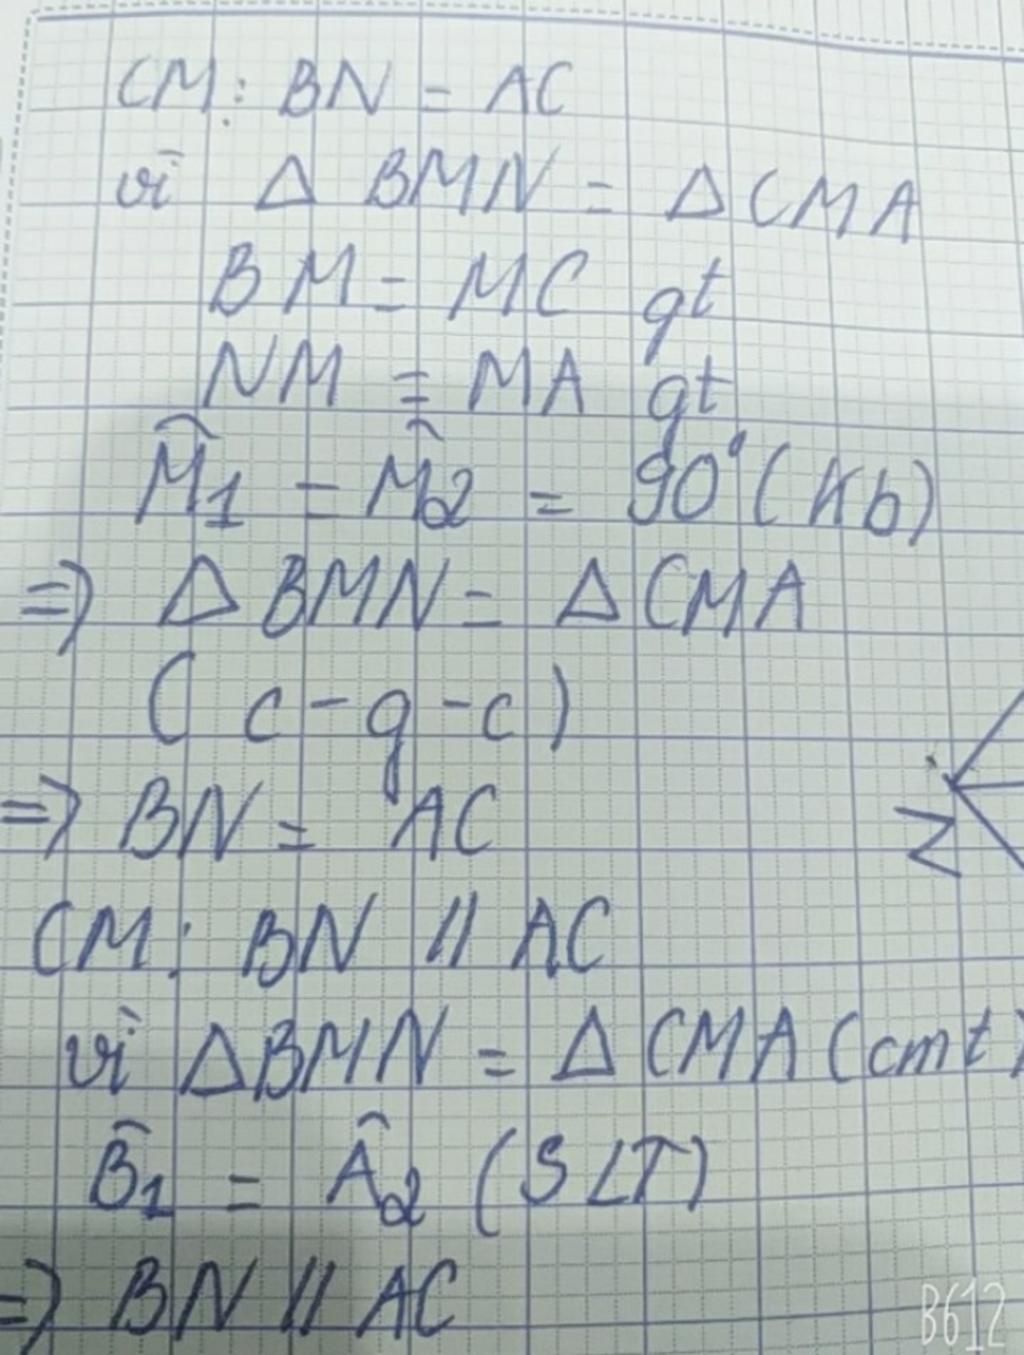 CM: BN = AC
vì Δ BMN = Δ CMA
BM = MC gt
NM = MA gt
M̂1 = M̂2 = 90° (Kb)
=> Δ BMN = Δ CMA
( c - g - c )
=> BN = AC
CM: BN // AC
vì Δ BMN = Δ CMA (cmt)
B̂1 = Â2 (SLT)
=> BN // AC
N
B612